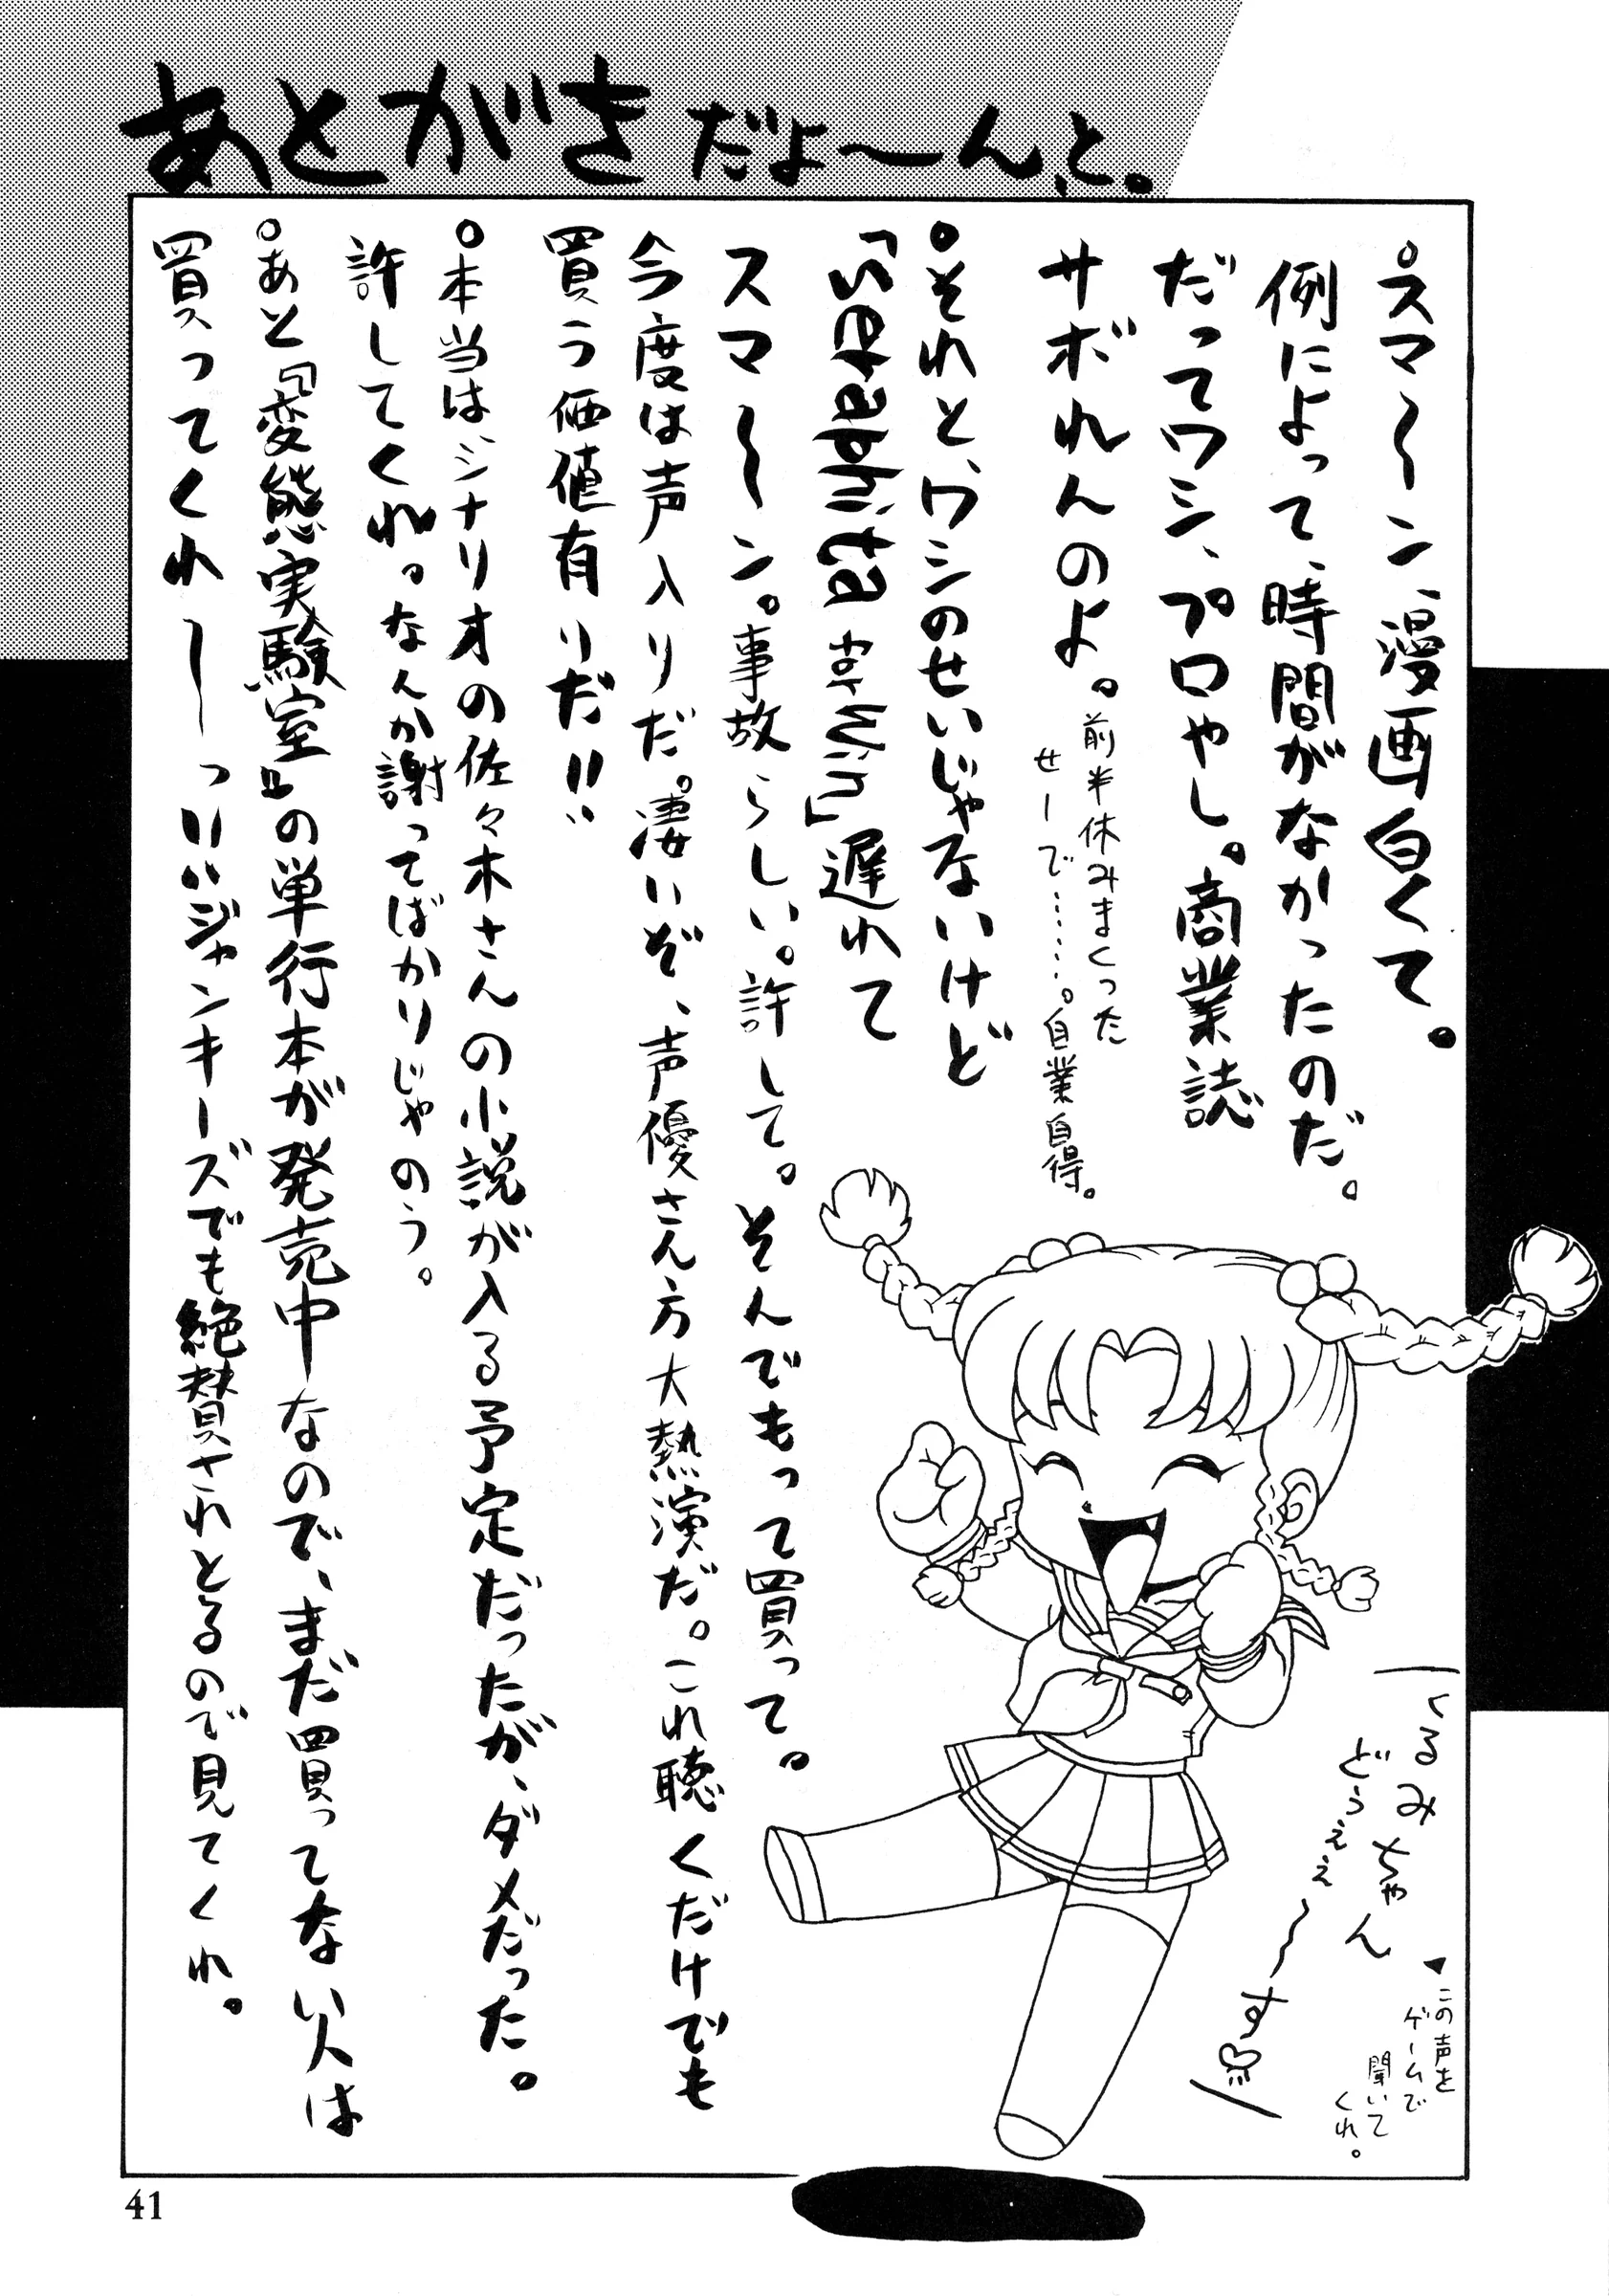 あとがきだよ〜ん、と。
◦スマ〜ン、漫画白くて。
例によって、時間がなかったのだ。
だってワシ、プロやし。商業誌
サボれんのよ。前半休みまくった
せーで……。自業自得。
◦それと、ワシのせいじゃないけど
遅れて
スマ〜ン。事故らしい。許して。そんでもって買って。
今度は声入りだ。凄いぞ、声優さん方大熱演だ。これ聴くだけでも
買う価値有りだ!!
◦本当はシナリオの佐々木さんの小説が入る予定だったが、ダメだった。
許してくれ。なんか謝ってばかりじゃのう。
◦あと『変態実験室』の単行本が発売中なので、まだ買ってない人は
買ってくれ〜っ!!いいジャンキーズでも絶賛されとるので見てくれ。
くるみちゃん
どぅぇぇ〜〜す♡
この声を
ゲームで
聞いて
くれ。
41